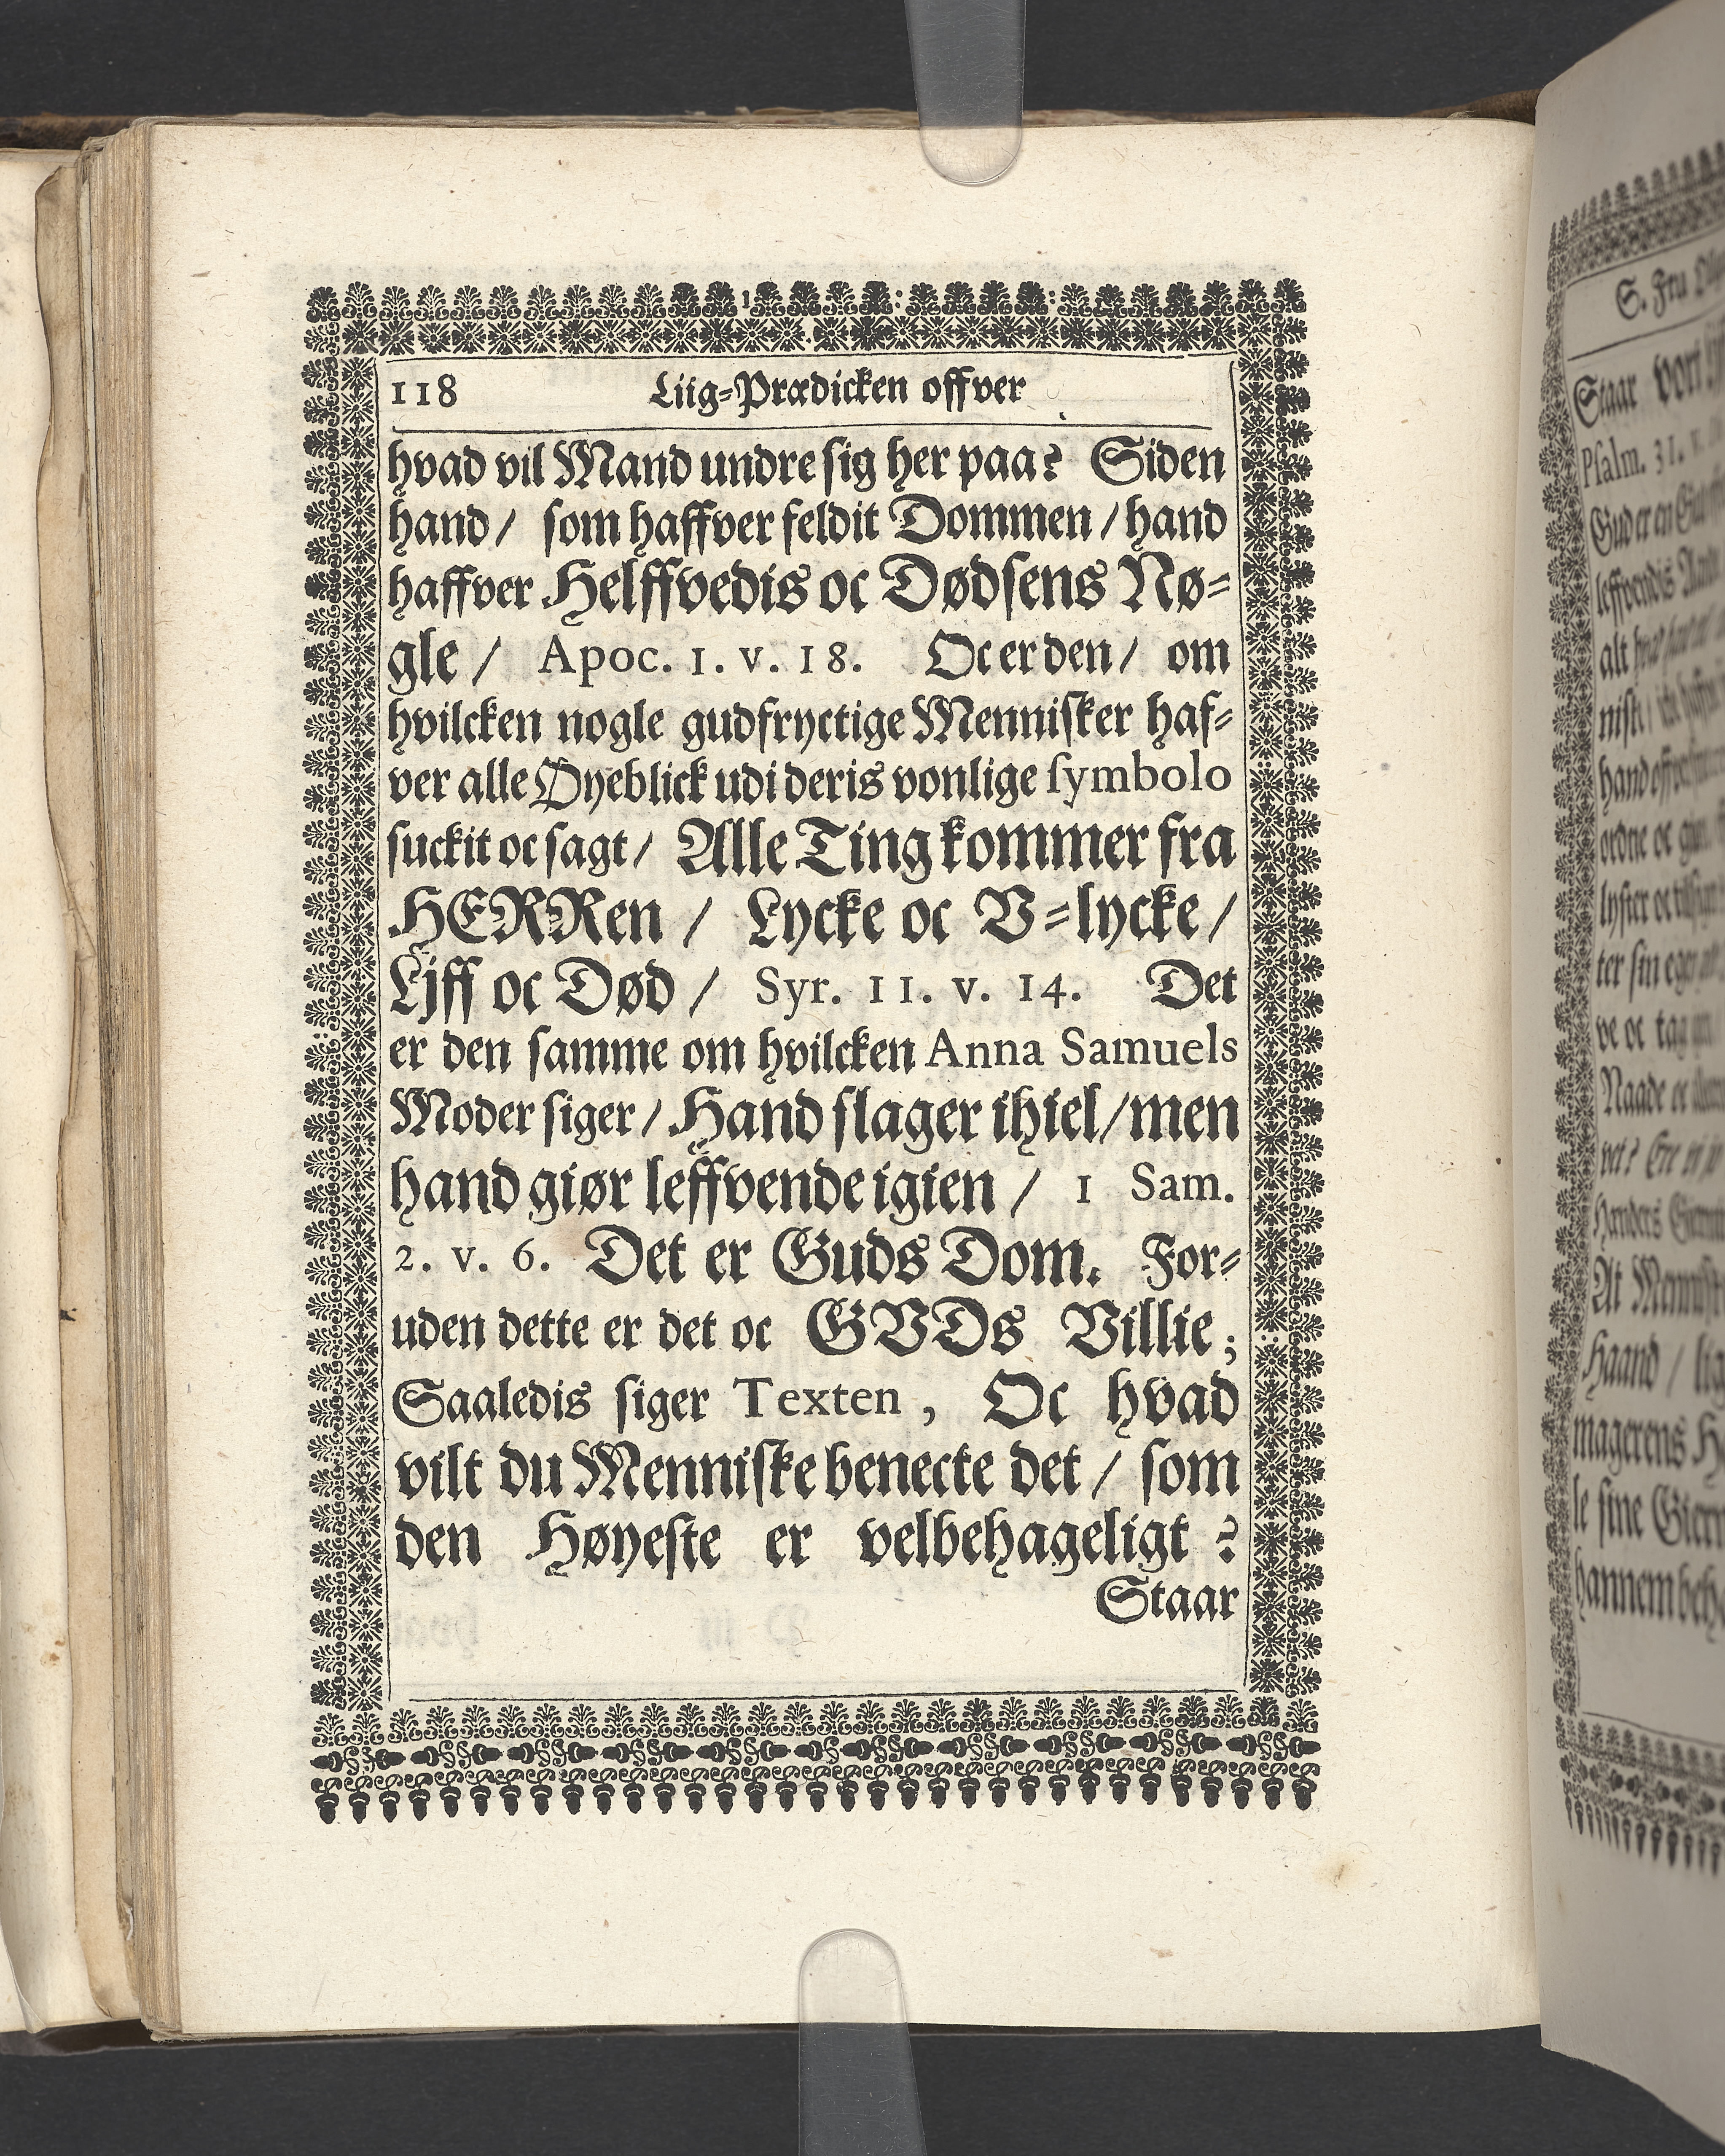 118 Liig-Prædicken offver
hvad vil Mand undre sig her paa? Siden
hand / som haffver feldit Dommen / hand
haffver Helffvedis oc Dødsens Nø-
gle / Apoc. 1. v. 18. Oc er den / om
hvilcken nogle gudfryctige Mennisker haf-
ver alle Øyeblick udi deris vonlige symbolo
suckit oc sagt / Alle Ting kommer fra
HERRen / Lycke oc V-lycke /
Ljff oc Død / Syr. 11. v. 14. Det
er den samme om hvilcken Anna Samuels
Moder siger / Hand slager ihiel / men
hand giør leffvende igien / 1 Sam.
2. v. 6. Det er Guds Dom. For-
uden dette er det oc GVDs Villie ;
Saaledis siger Texten , Oc hvad
vilt du Menniske benecte det / som
den Høyeste er velbehageligt ?
Staar
S. Fru
Staar vort
Psalm. 31. v.
Gud er en
leffvendis
alt
hand
ordne oc
lyster oc
ter sin egen
ve oc tag
Naade oc
vet?
At
Haand /
magerens
le sine
hannem